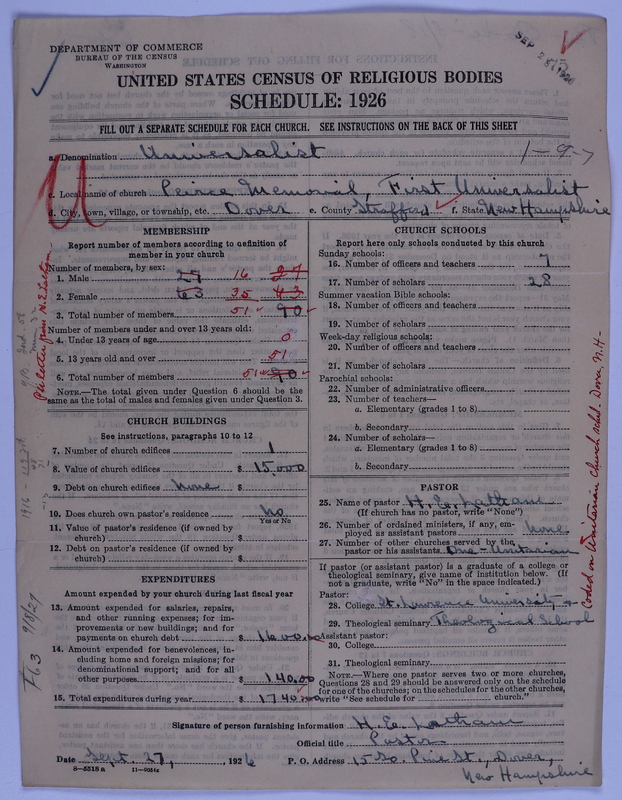 DEPARTMENT OF COMMERCE
BUREAU OF THE CENSUS
WASHINGTON
SEP 28 1926
UNITED STATES CENSUS OF RELIGIOUS BODIES
SCHEDULE: 1926
FILL OUT A SEPARATE SCHEDULE FOR EACH CHURCH. SEE INSTRUCTIONS ON THE BACK OF THIS SHEET
a. Denomination Universalist 1-9-7
c. Local name of church Peirce Memorial, First Universalist
d. City, town, village, or township, etc. Dover e. County Strafford f. State New Hampshire
MEMBERSHIP
Report number of members according to definition of
member in your church
Number of members, by sex:
1. Male 27 16 27
2. Female 63 35 43
3. Total number of members 51 90
Number of members under and over 13 years old:
4. Under 13 years of age 0
5. 13 years old and over 51
6. Total number of members 51 90
NOTE.—The total given under Question 6 should be
same as the total of males and females given under Question 3.
CHURCH BUILDINGS
See instructions, paragraphs 10 to 12
7. Number of church edifices 1
8. Value of church edifices $ 15,000
9. Debt on church edifices none $
10. Does church own pastor's residence? No
Yes or No
11. Value of pastor's residence (if owned by
church) $
12. Debt on pastor's residence (if owned by
church) $
EXPENDITURES
Amount expended by your church during last fiscal year
13. Amount expended for salaries, repairs,
and other running expenses; for im-
provements or new buildings; and for
payments on church debt $ 1600.00
14. Amount expended for benevolences, in-
cluding home and foreign missions; for
denominational support; and for all
other purposes $ 140.00
15. Total expenditures during year $ 1740.00
CHURCH SCHOOLS
Report here only schools conducted by this church
Sunday schools:
16. Number of officers and teachers 7
17. Number of scholars 28
Summer vacation Bible schools:
18. Number of officers and teachers
19. Number of scholars
Week-day religious schools:
20. Number of officers and teachers
21. Number of scholars
Parochial schools:
22. Number of administrative officers
23. Number of teachers—
a. Elementary (grades 1 to 8)
b. Secondary
24. Number of scholars—
a. Elementary (grades 1 to 8)
b. Secondary
PASTOR
25. Name of pastor H. E. Latham
(If church has no pastor, write "None")
26. Number of ordained ministers, if any, em-
ployed as assistant pastors None
27. Number of other churches served by the
pastor or his assistants One - Unitarian
If pastor (or assistant pastor) is a graduate of a college or
theological seminary, give name of institution below. (If
not a graduate, write "No" in the space indicated.)
Pastor:
28. College St. Lawrence University
29. Theological seminary Theological School
Assistant pastor:
30. College
31. Theological seminary
NOTE.—Where one pastor serves two or more churches,
Questions 28 and 29 should be answered only on the schedule
for one of the churches; on the schedules for the other churches,
write "See schedule for church."
Signature of person furnishing information H. E. Latham
Official title Pastor
Date Sept. 27, 1926 P. O. Address 15 So. Pine St., Dover,
New Hampshire
8—5518 a
Coded on Unitarian church sched. Dover, N.H-
763 9/8/27